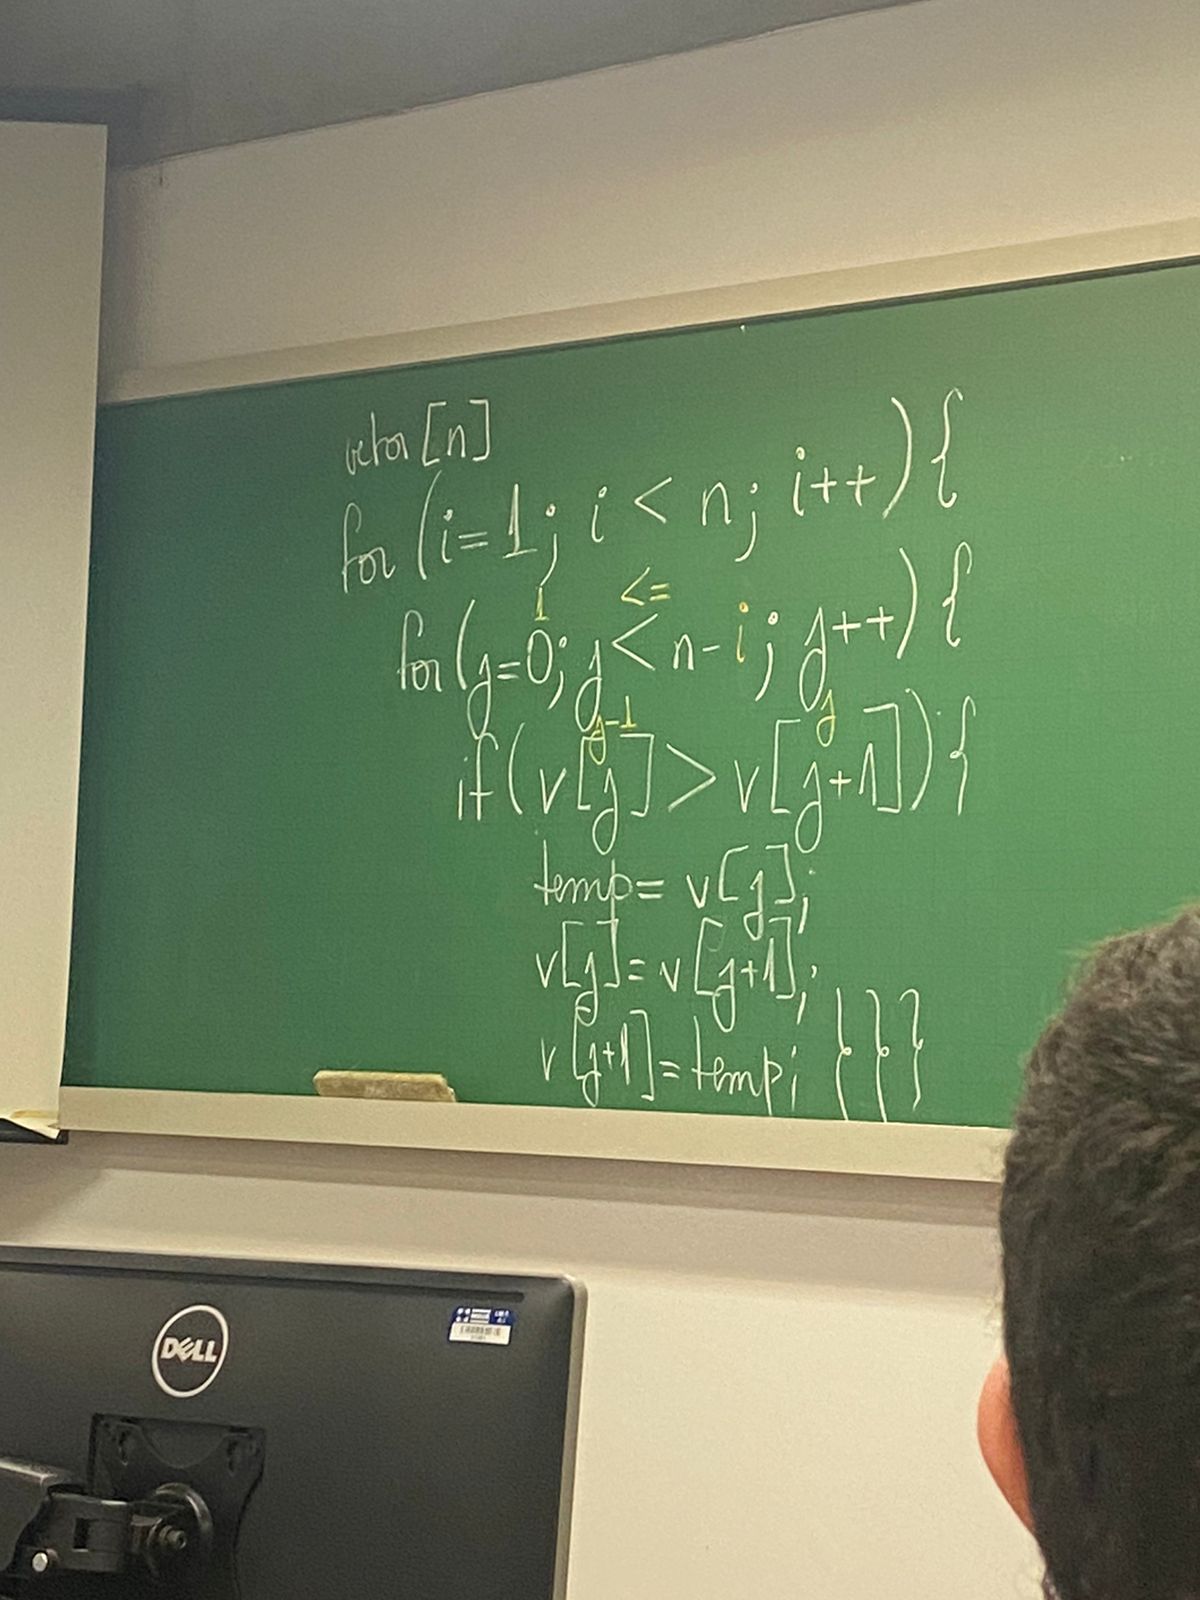 vetor [n]
for (i=1; i < n; i++) {
1 <=
for (j=0; j < n-i; j++) {
j-1 j
if (v[j] > v[j+1]) {
temp = v[j];
v[j] = v[j+1];
v[j+1] = temp; }}}
DELL